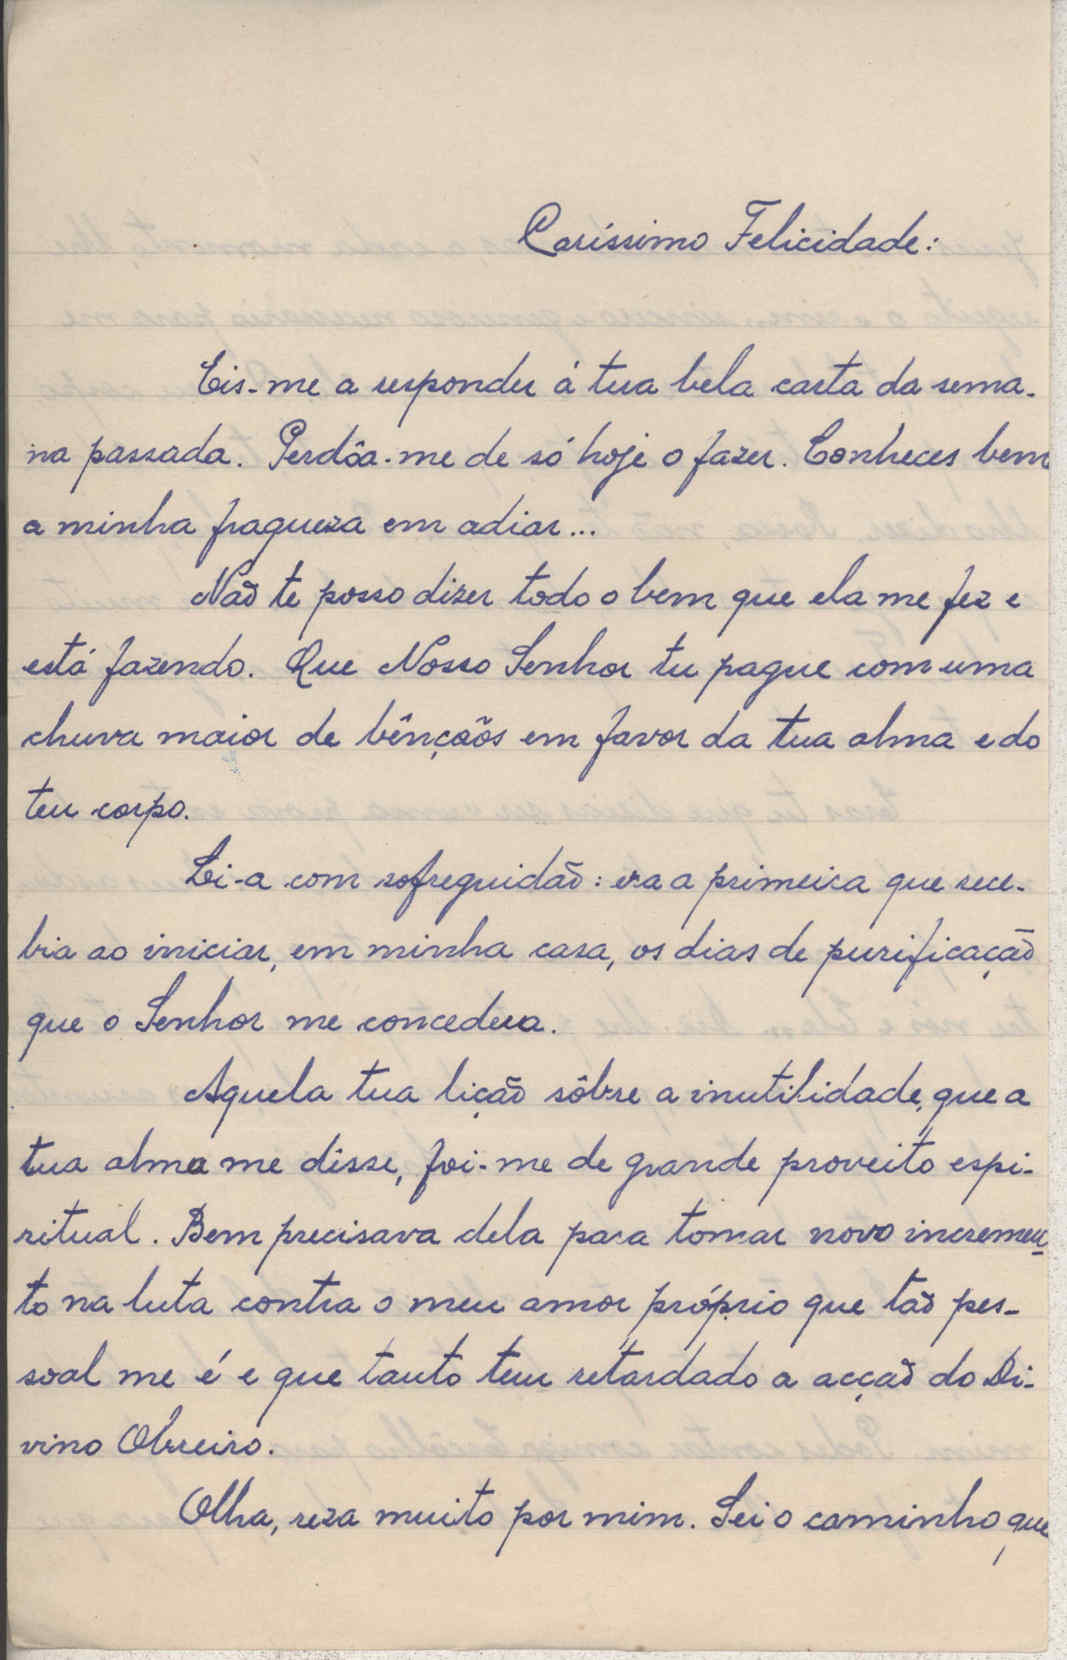 Caríssimo Felicidade:
Eis-me a responder á tua bela carta da sema-
na passada. Perdôa-me de só hoje o fazer. Conheces bem
a minha fraqueza em adiar...
Não te posso dizer todo o bem que ela me fez e
está fazendo. Que Nosso Senhor tu pague com uma
chuva maior de bênçãos em favor da tua alma e do
teu corpo.
Li-a com sofreguidão: era a primeira que rece-
bia ao iniciar, em minha casa, os dias de purificação
que o Senhor me concedera.
Aquela tua lição sôbre a inutilidade, que a
tua alma me disse, foi-me de grande proveito espi-
ritual. Bem precisava dela para tomar novo incremen
to na luta contra o meu amor próprio que tão pes-
soal me é e que tanto tem retardado a acção do Di-
vino Obreiro.
Olha, reza muito por mim. Sei o caminho que